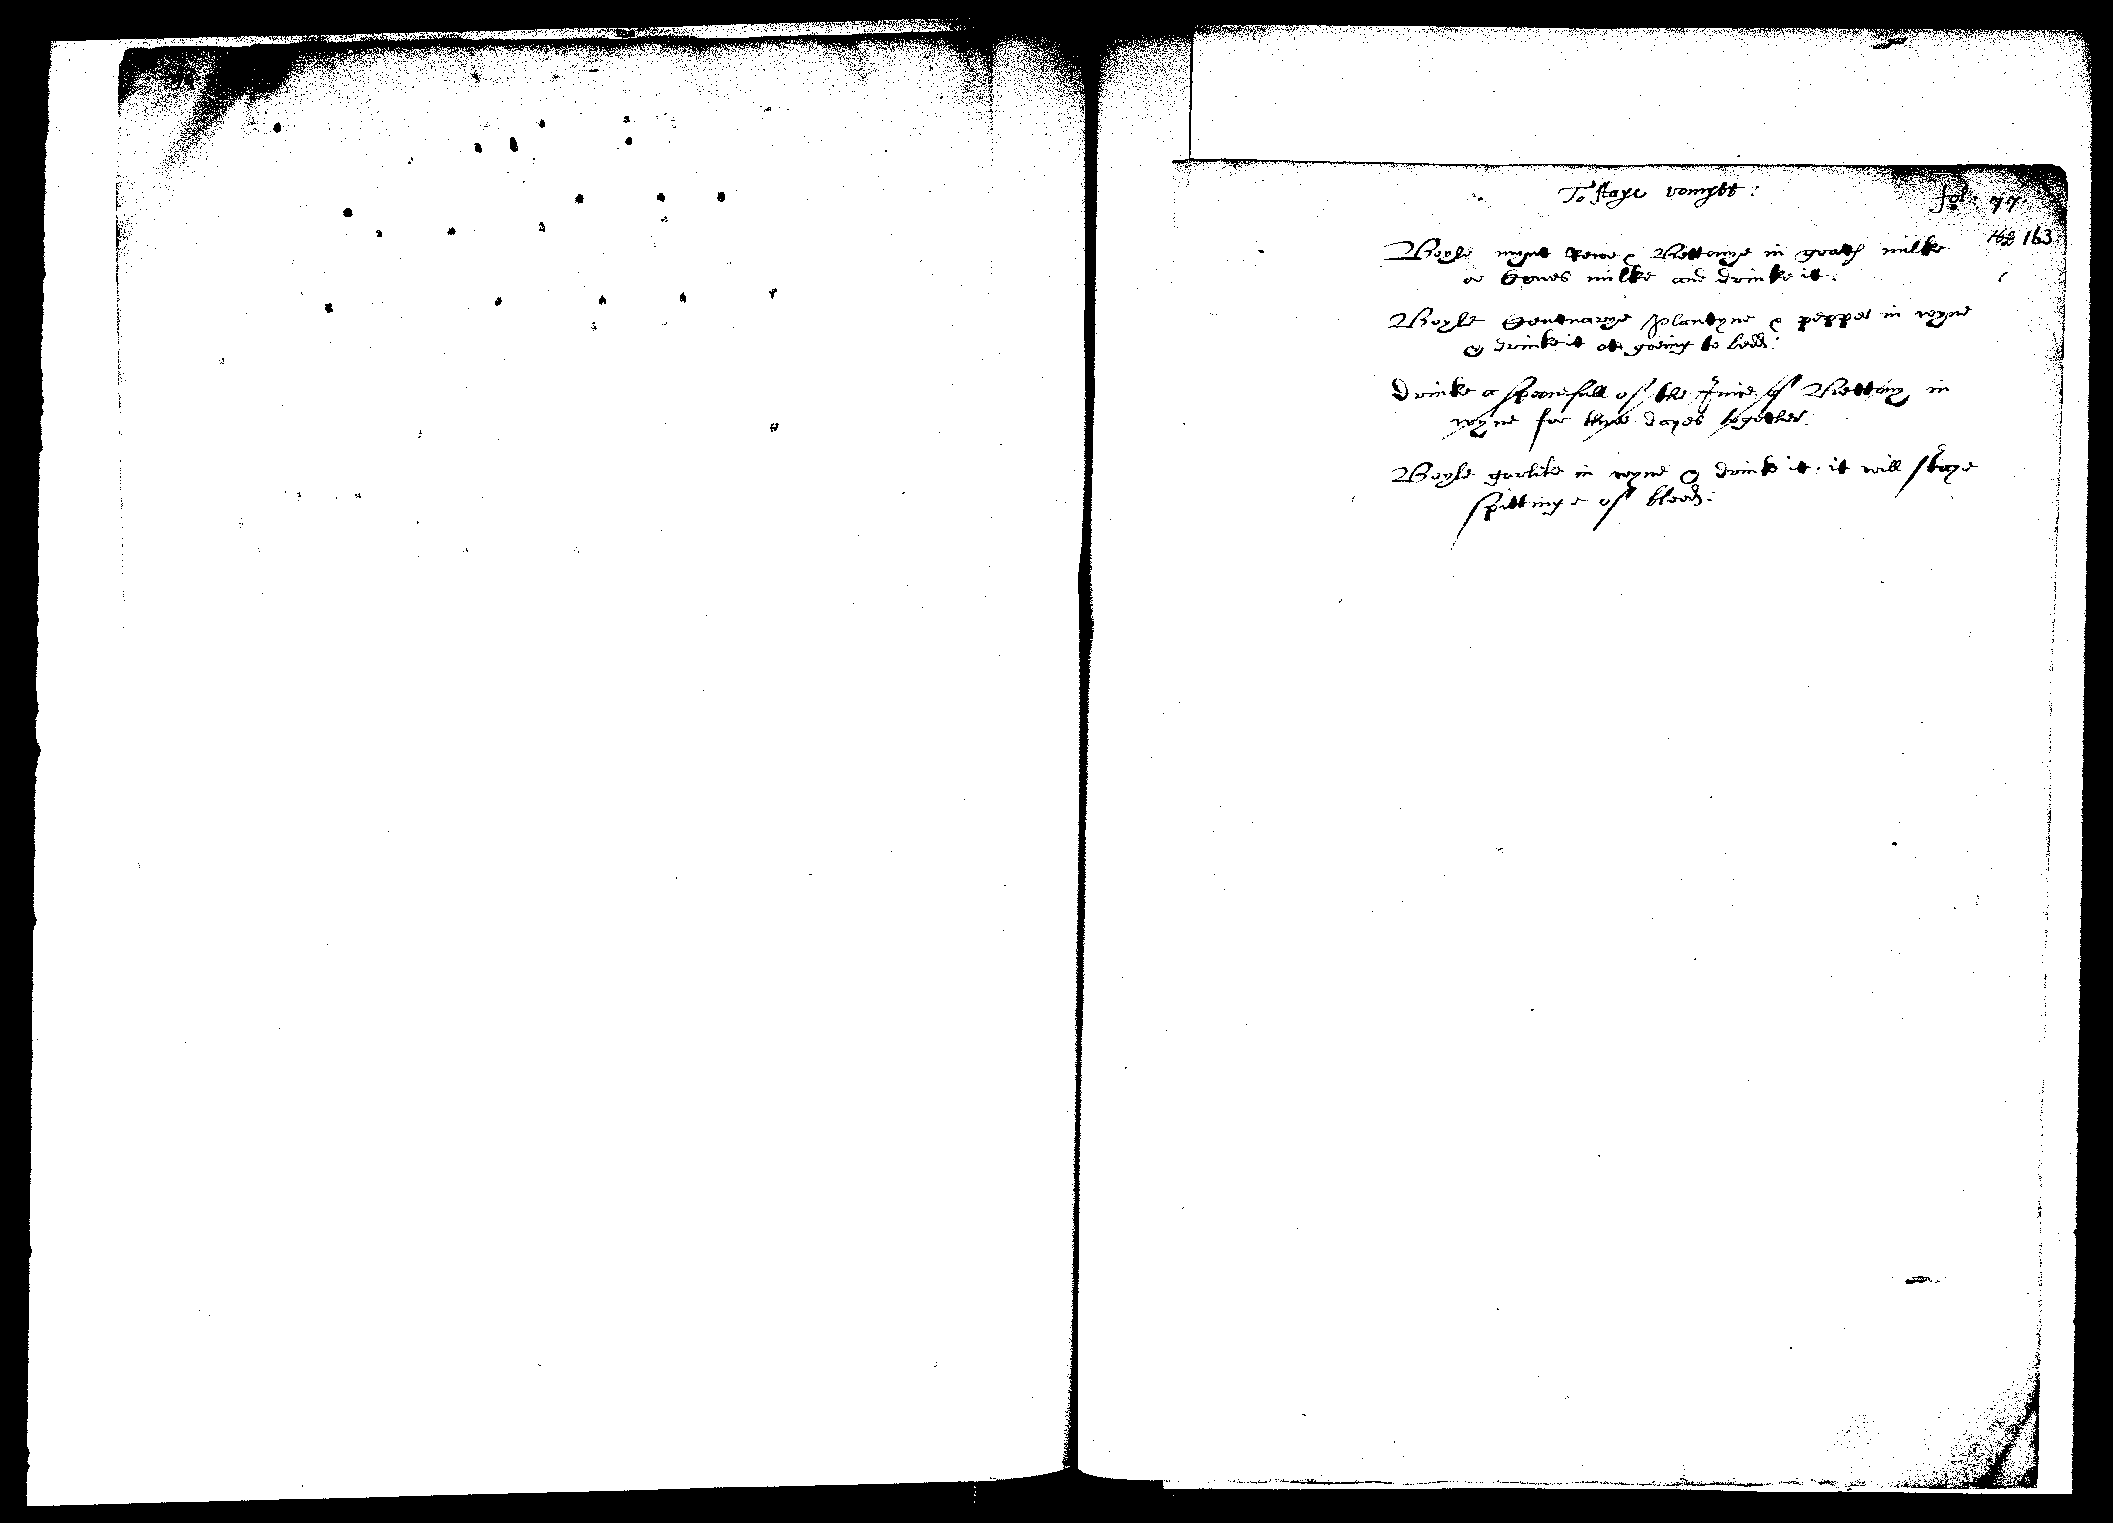 To staye vomytt:
fol: 77
162 163
Boyle mynt Rewe & Bettonye in goats milke
or Cowes milke and drinke it.
Boyle Centuarye plantyne & pepper in wyne
& drinke it at going to bedd:
Drinke a spoonefull of the Juice of Bettony in
wyne for three dayes together.
Boyle garlike in wyne & drinke it. it will staye
spittinge of blood: